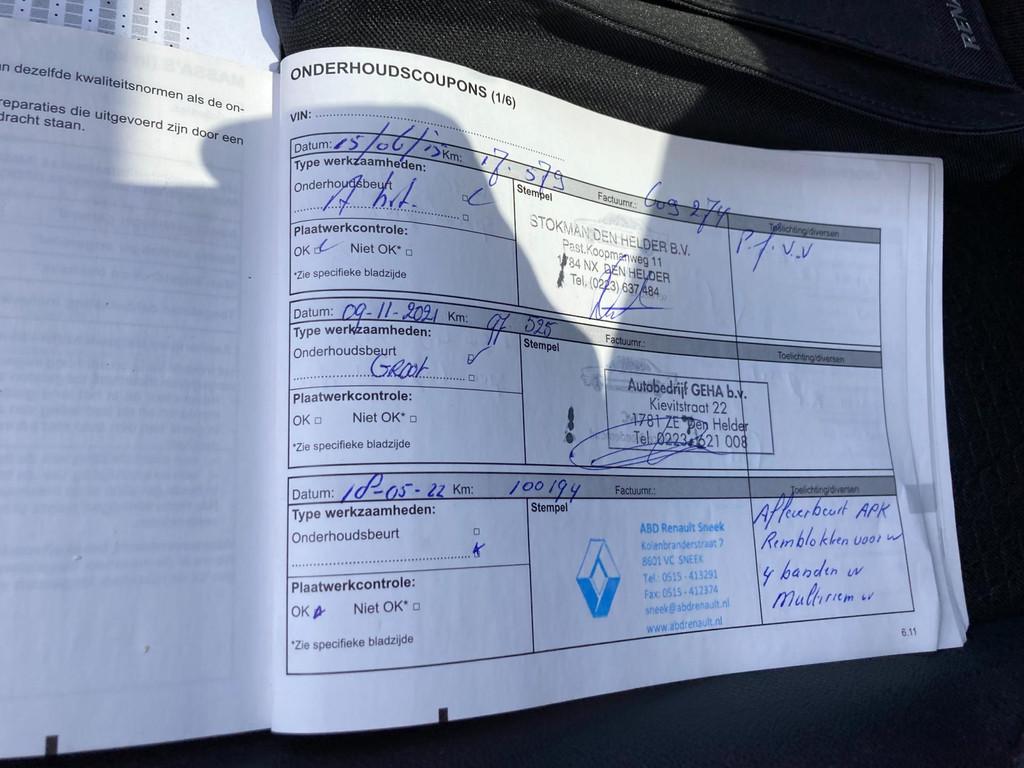 n dezelfde kwaliteitsnormen als de on-
reparaties die uitgevoerd zijn door een
dracht staan.
RENA
ONDERHOUDSCOUPONS (1/6)
VIN:
Datum: 15/06/ Km: 17.579 Factuurnr.: 609274
Type werkzaamheden:
Onderhoudsbeurt
A brt.
Plaatwerkcontrole:
OK Niet OK*
*Zie specifieke bladzijde
Stempel
STOKMAN DEN HELDER B.V.
Past.Koopmanweg 11
1784 NX DEN HELDER
Tel. (0223) 637484
Toelichting/diversen
P.f. v.v
Datum: 09-11-2021 Km: 97 525 Factuurnr.:
Type werkzaamheden:
Onderhoudsbeurt
GROOT
Plaatwerkcontrole:
OK Niet OK*
*Zie specifieke bladzijde
Stempel
Autobedrijf GEHA b.v.
Kievitstraat 22
1781 ZE Den Helder
Tel. 0223-621 008
Toelichting/diversen
Datum: 18-05-22 Km: 100194 Factuurnr.:
Type werkzaamheden:
Onderhoudsbeurt
Plaatwerkcontrole:
OK Niet OK*
*Zie specifieke bladzijde
Stempel
ABD Renault Sneek
Kolenbranderstraat 7
8601 VC SNEEK
Tel.: 0515 - 413291
Fax: 0515 - 412374
sneek@abdrenault.nl
www.abdrenault.nl
Toelichting/diversen
Afleverbeurt APK
Remblokken voor w
4 banden w
Multiriem w
6.11